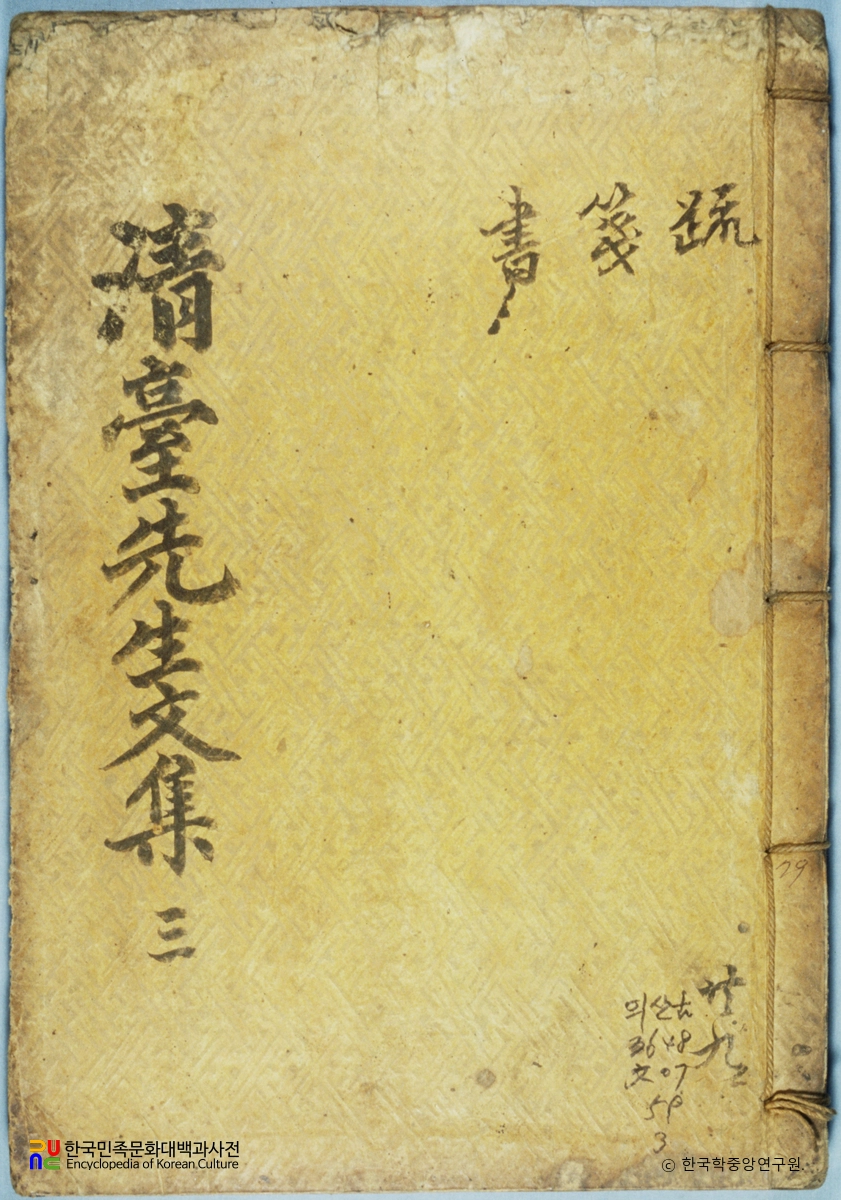 疏
箋
書
清臺先生文集 三
79
의산古
3648
文07
59
3
한국민족문화대백과사전
Encyclopedia of Korean Culture
© 한국학중앙연구원.